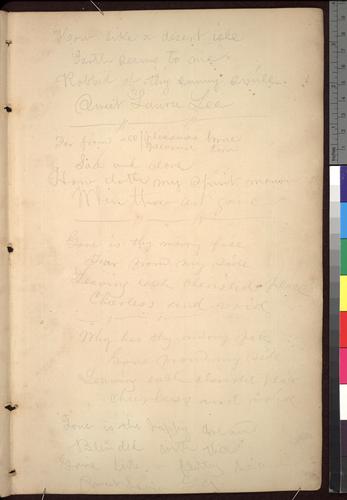 How like a desert isle
Earth seems to me
Robbed of thy sunny smile
Sweet Laura Lee
Far from
Sad and alone
How doth my spirit mourn
When thou art gone
Gone is thy merry face
Far from my side
Leaving each cherished place
Cheerless and void
Why has thy merry face
Gone from my side
Leaving each cherished place
Cheerless and void
Gone is the happy dream
Blended with thee
Gone like a